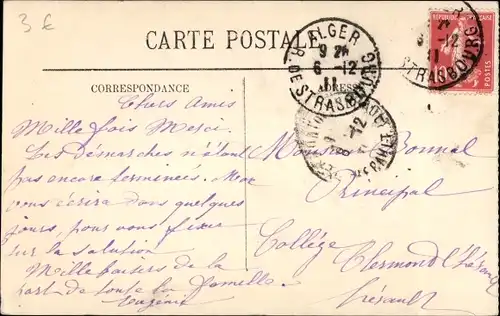 3 €
CARTE POSTALE
ALGER
R. DE STRASBOURG
9 24
6 - 12
11
STRASBOURG
6 - 12
11
10
POSTES
CORRESPONDANCE
ADRESSE
Chers Amis
Mille fois Merci.
Les Démarches n'étant
pas encore terminées. Max
vous écrira dans quelques
jours, pour vous fixer
sur la solution
Meille baisers de la
part de toute la famille
Eugénie
Monsieur Bonnal
Principal
Collège
Clermond l'Hérault
Hérault